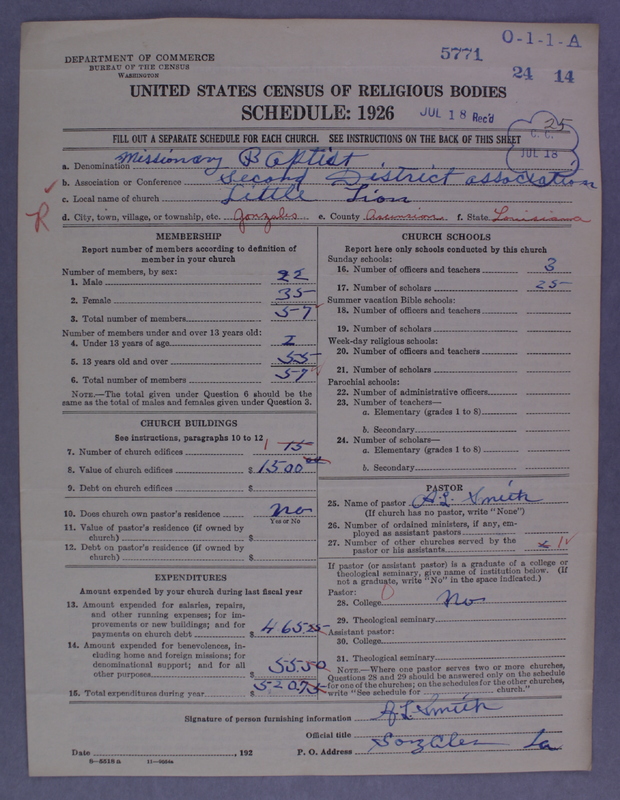 O-1-1-A
5771
24 14
DEPARTMENT OF COMMERCE
BUREAU OF THE CENSUS
WASHINGTON
UNITED STATES CENSUS OF RELIGIOUS BODIES
SCHEDULE: 1926
JUL 18 Rec'd
25
C. C.
JUL 18
FILL OUT A SEPARATE SCHEDULE FOR EACH CHURCH. SEE INSTRUCTIONS ON THE BACK OF THIS SHEET
a. Denomination Missionary Baptist
b. Association or Conference Second District association
c. Local name of church Little Zion
R d. City, town, village, or township, etc. Gonzales e. County Ascension f. State Louisiana
MEMBERSHIP
Report number of members according to definition of
member in your church
Number of members, by sex:
1. Male 22
2. Female 35
3. Total number of members 57
Number of members under and over 13 years old:
4. Under 13 years of age 2
5. 13 years old and over 55
6. Total number of members 57
NOTE.—The total given under Question 6 should be the
same as the total of males and females given under Question 3.
CHURCH BUILDINGS
See instructions, paragraphs 10 to 12
7. Number of church edifices 1 15
8. Value of church edifices $ 1500
9. Debt on church edifices $
10. Does church own pastor's residence No
Yes or No
11. Value of pastor's residence (if owned by
church) $
12. Debt on pastor's residence (if owned by
church) $
EXPENDITURES
Amount expended by your church during last fiscal year
13. Amount expended for salaries, repairs,
and other running expenses; for im-
provements or new buildings; and for
payments on church debt $ 465 25
14. Amount expended for benevolences, in-
cluding home and foreign missions; for
denominational support; and for all
other purposes $ 55 50
15. Total expenditures during year $ 520 75
CHURCH SCHOOLS
Report here only schools conducted by this church
Sunday schools:
16. Number of officers and teachers 3
17. Number of scholars 25
Summer vacation Bible schools:
18. Number of officers and teachers
19. Number of scholars
Week-day religious schools:
20. Number of officers and teachers
21. Number of scholars
Parochial schools:
22. Number of administrative officers
23. Number of teachers—
a. Elementary (grades 1 to 8)
b. Secondary
24. Number of scholars—
a. Elementary (grades 1 to 8)
b. Secondary
PASTOR
25. Name of pastor A. L. Smith
(If church has no pastor, write "None")
26. Number of ordained ministers, if any, em-
ployed as assistant pastors
27. Number of other churches served by the
pastor or his assistants 1
If pastor (or assistant pastor) is a graduate of a college or
theological seminary, give name of institution below. (If
not a graduate, write "No" in the space indicated.)
Pastor: 0
28. College No
29. Theological seminary
Assistant pastor:
30. College
31. Theological seminary
NOTE.—Where one pastor serves two or more churches,
Questions 28 and 29 should be answered only on the schedule
for one of the churches; on the schedules for the other churches,
write "See schedule for church."
Signature of person furnishing information A L Smith
Official title
Date , 192 P. O. Address Gonzales La
8-5518 a